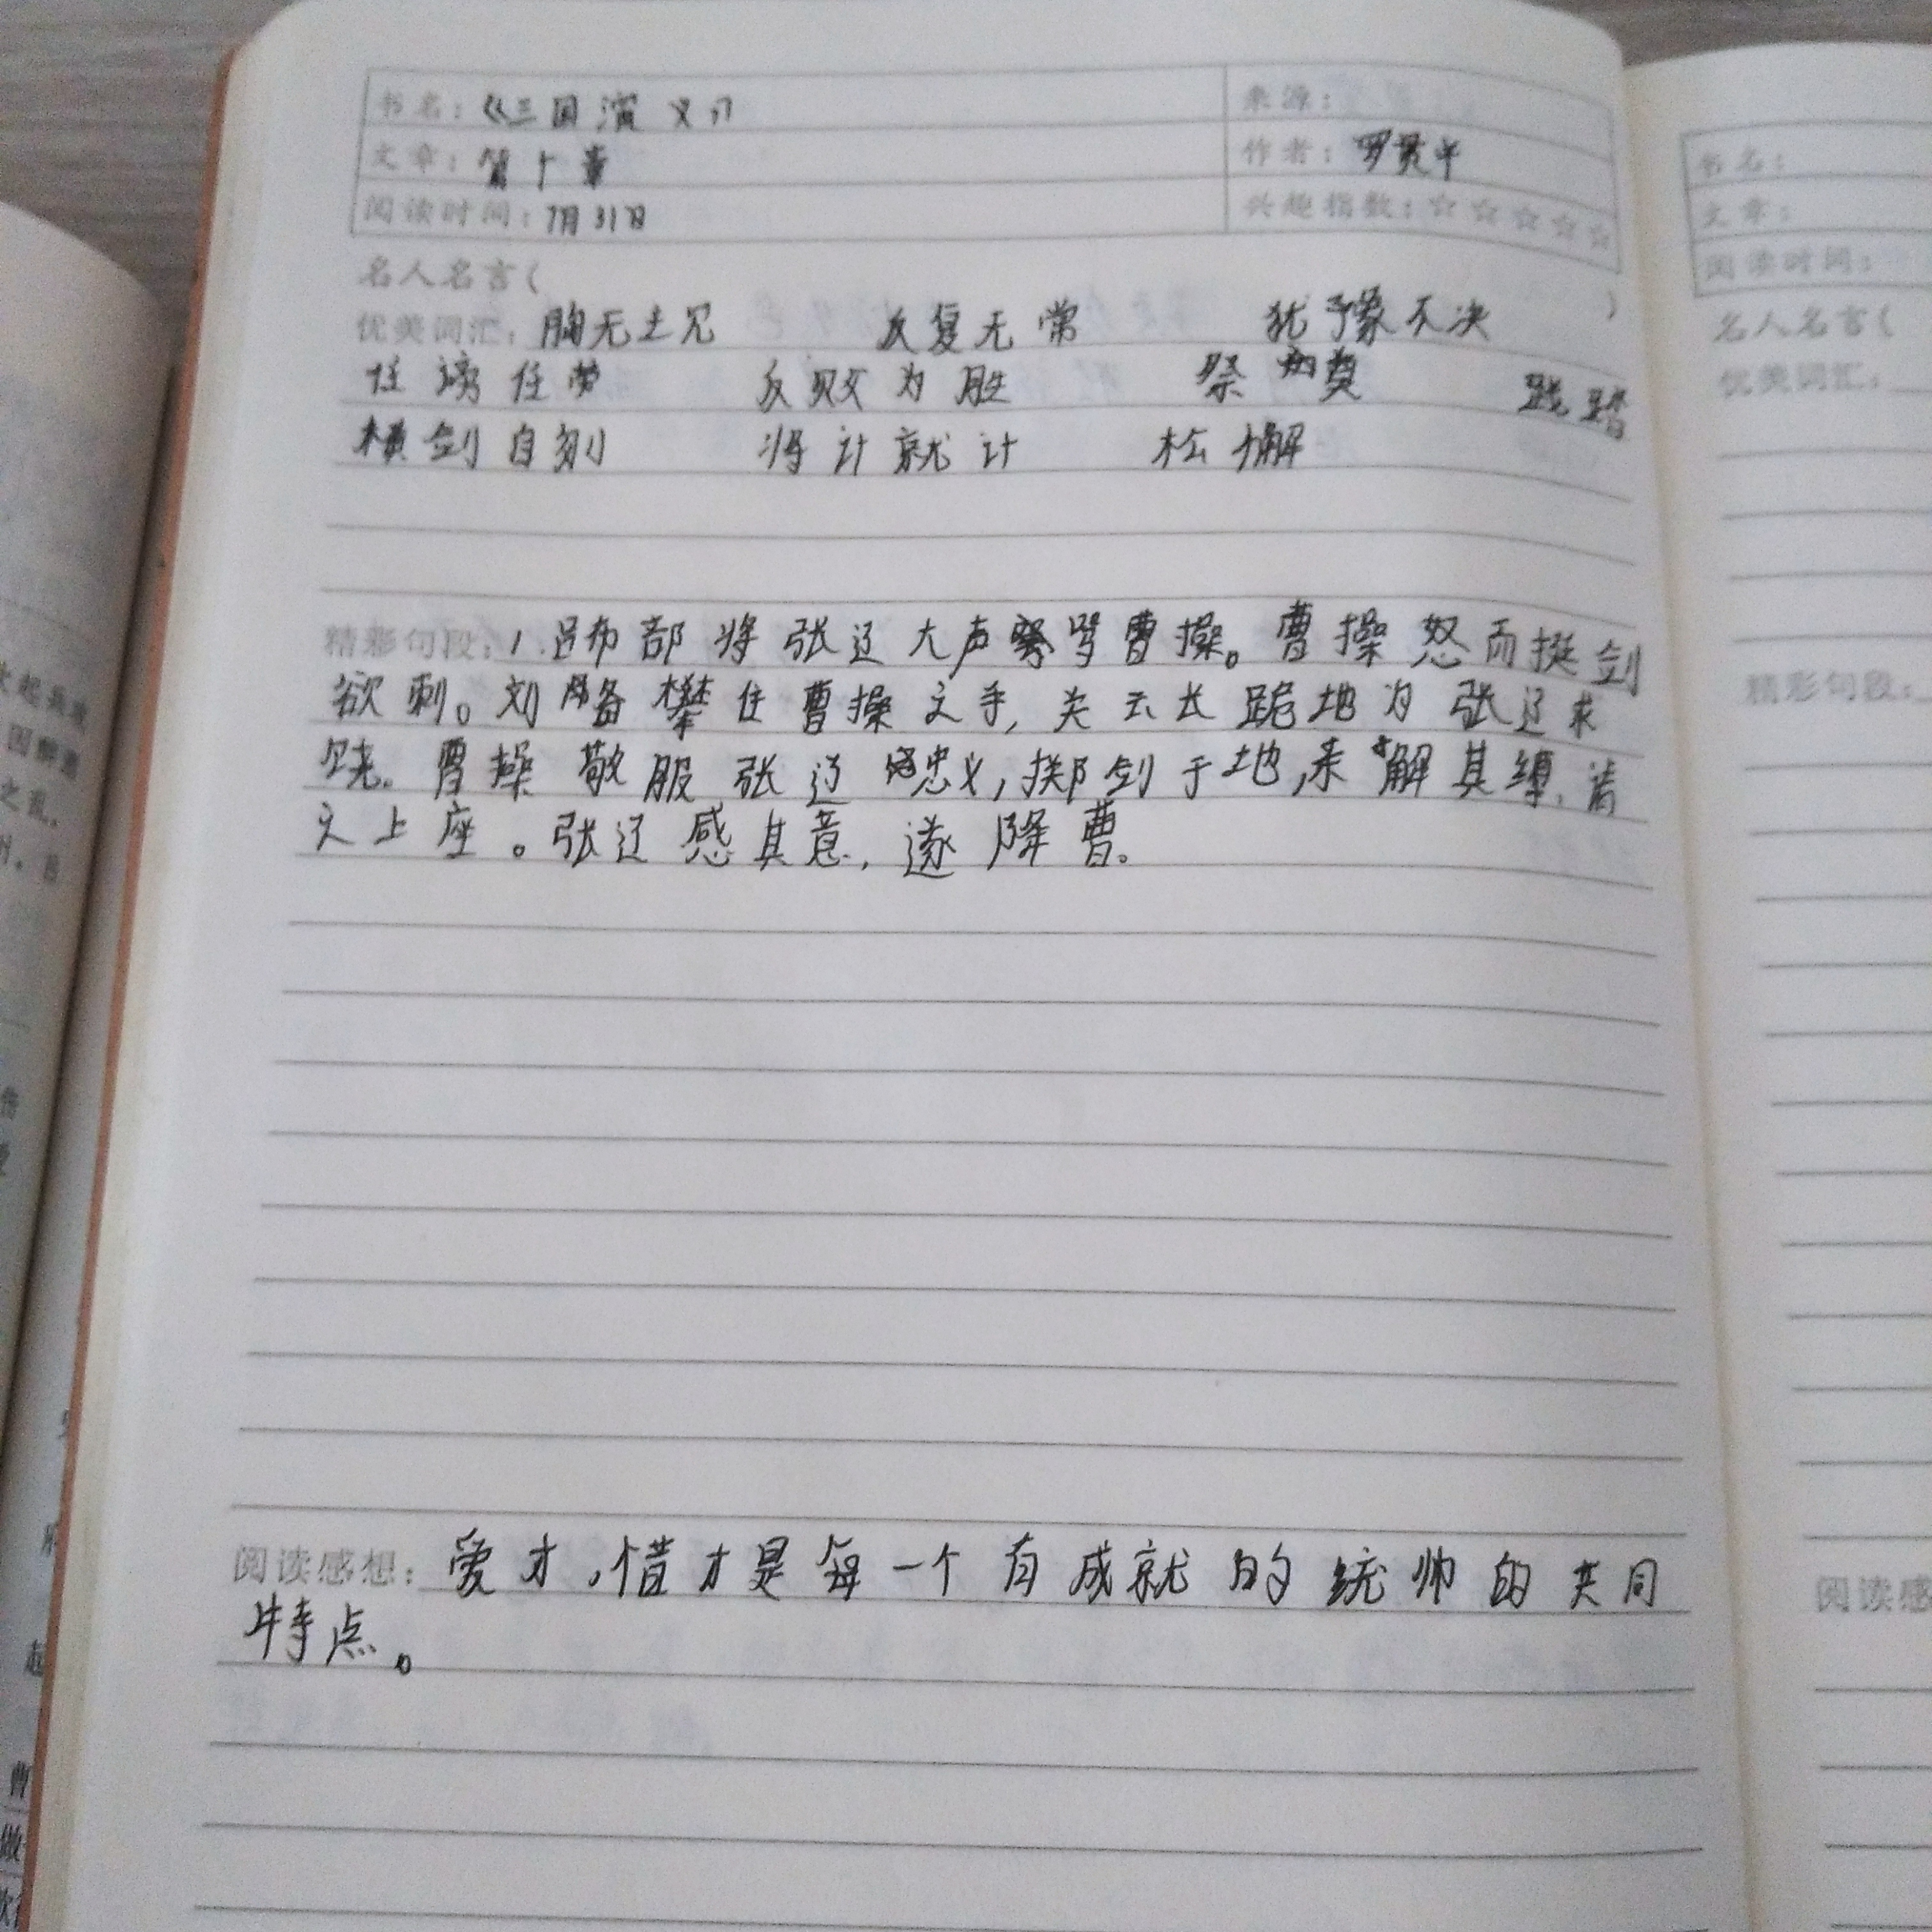 书名：《三国演义》 来源：
文章：第十章 作者：罗贯中
阅读时间：7月31日 兴趣指数：☆☆☆☆☆
名人名言（ ）
优美词汇：胸无主见 反复无常 犹豫不决
任谤任劳 反败为胜 祭奠 践踏
横剑自刎 将计就计 松懈
精彩句段：1.吕布部将张辽大声骂曹操。曹操怒而挺剑
欲刺。刘备攀住曹操之手，关云长跪地为张辽求
饶。曹操敬服张辽忠义，掷剑于地，亲解其缚，请
之上座。张辽感其意，遂降曹。
阅读感想：爱才，惜才是每一个有成就的统帅的共同
特点。
书名：
文章：
阅读时间：
名人名言（
优美词汇：
精彩句段：
阅读感
次起兵
因解
之乱，
州。自
曹
做